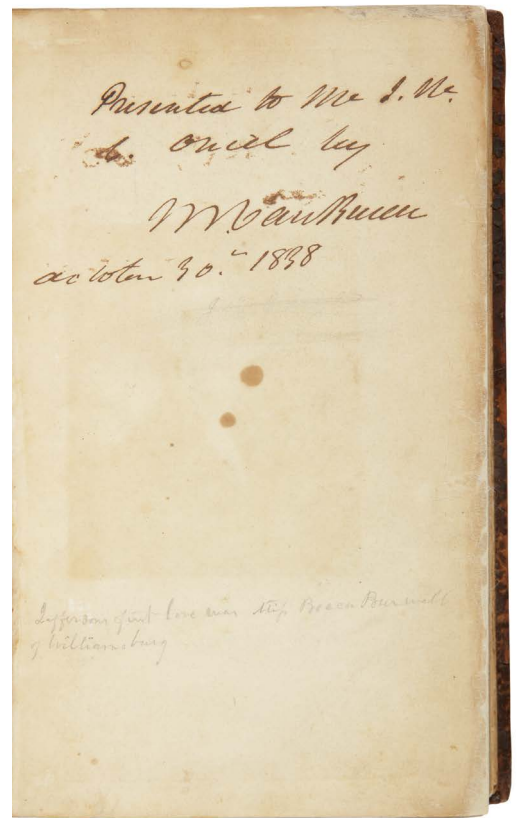 Presented to Mr J. W.
C. Oneil by
M Van Buren
October 30.th 1838
Jeffersons first love was Miss Becca Burwell
of Williamsburg